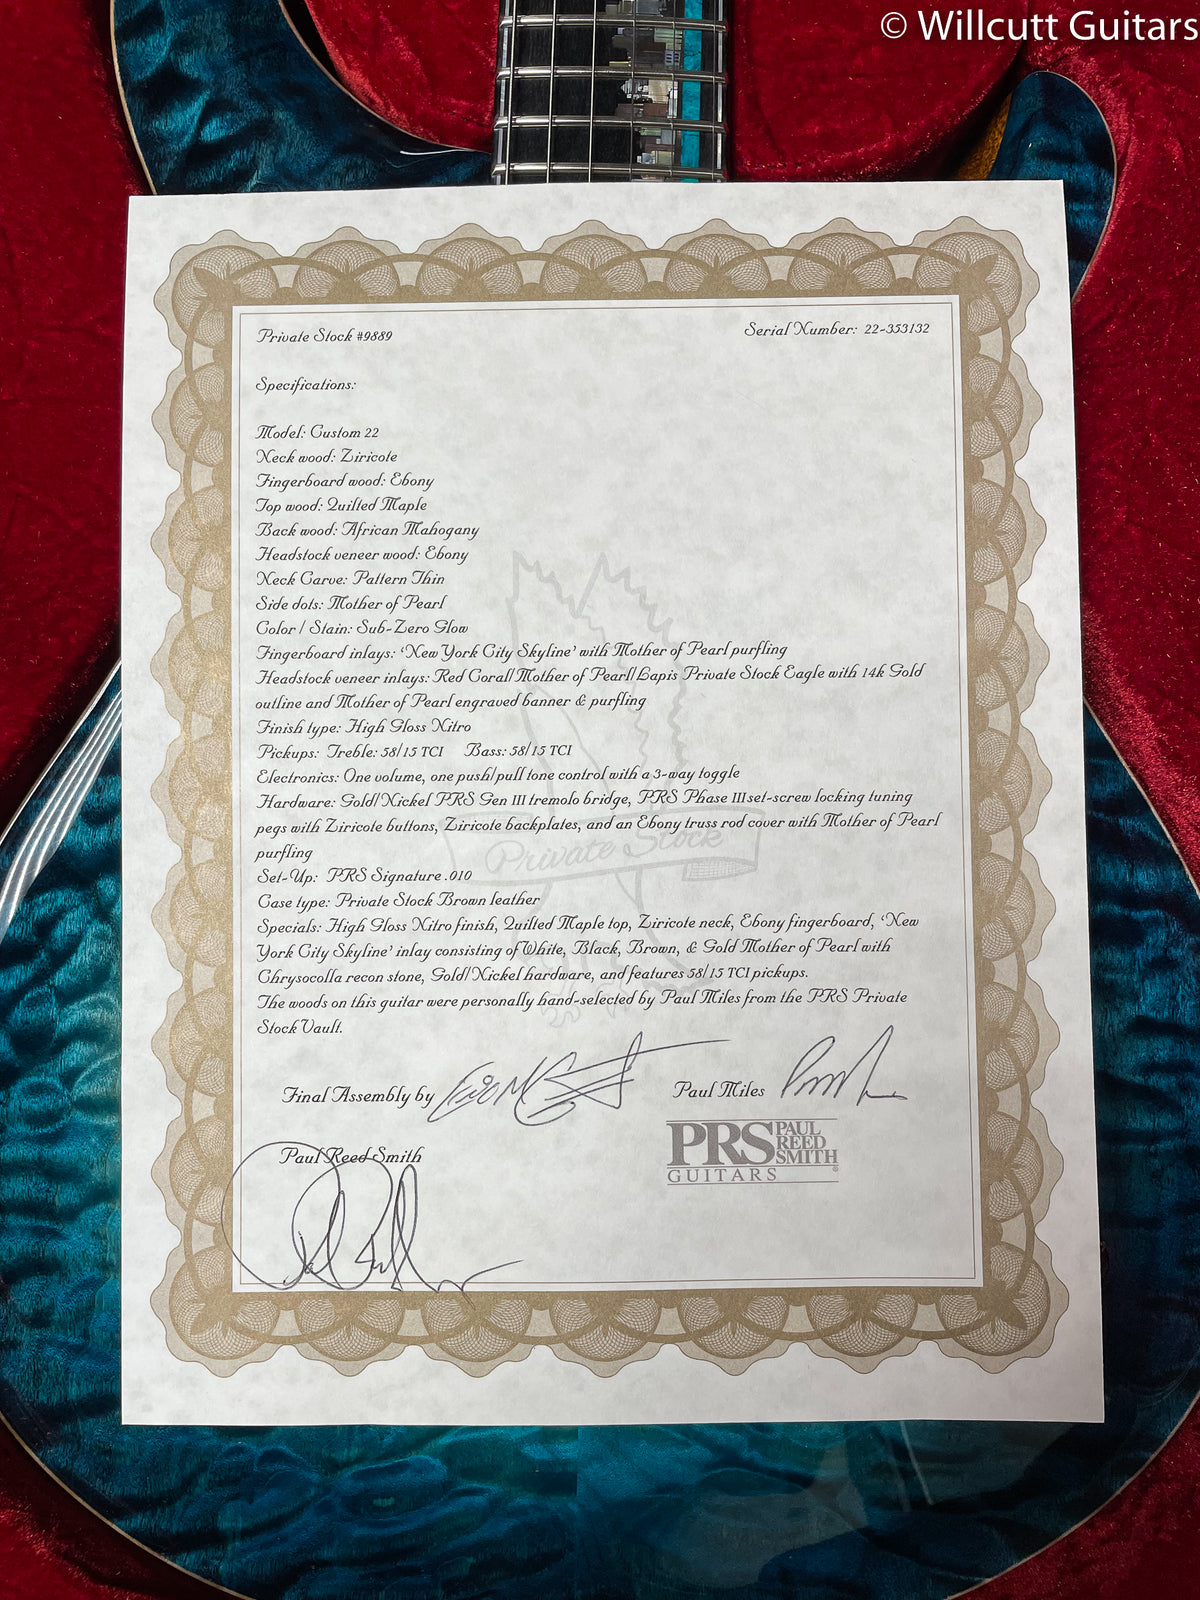 © Willcutt Guitars
Private Stock #9889
Serial Number: 22-353132
Specifications:
Model: Custom 22
Neck wood: Ziricote
Fingerboard wood: Ebony
Top wood: Quilted Maple
Back wood: African Mahogany
Headstock veneer wood: Ebony
Neck Carve: Pattern Thin
Side dots: Mother of Pearl
Color / Stain: Sub-Zero Glow
Fingerboard inlays: ‘New York City Skyline’ with Mother of Pearl purfling
Headstock veneer inlays: Red Coral/Mother of Pearl/Lapis Private Stock Eagle with 14k Gold
outline and Mother of Pearl engraved banner & purfling
Finish type: High Gloss Nitro
Pickups: Treble: 58/15 TCI Bass: 58/15 TCI
Electronics: One volume, one push/pull tone control with a 3-way toggle
Hardware: Gold/Nickel PRS Gen III tremolo bridge, PRS Phase III set-screw locking tuning
pegs with Ziricote buttons, Ziricote backplates, and an Ebony truss rod cover with Mother of Pearl
purfling
Private Stock
Set-Up: PRS Signature .010
Case type: Private Stock Brown leather
Specials: High Gloss Nitro finish, Quilted Maple top, Ziricote neck, Ebony fingerboard, ‘New
York City Skyline’ inlay consisting of White, Black, Brown, & Gold Mother of Pearl with
Chrysocolla recon stone, Gold/Nickel hardware, and features 58/15 TCI pickups.
The woods on this guitar were personally hand-selected by Paul Miles from the PRS Private
Stock Vault.
Final Assembly by
Paul Miles
Paul Reed Smith
PRS PAUL REED SMITH
GUITARS ®